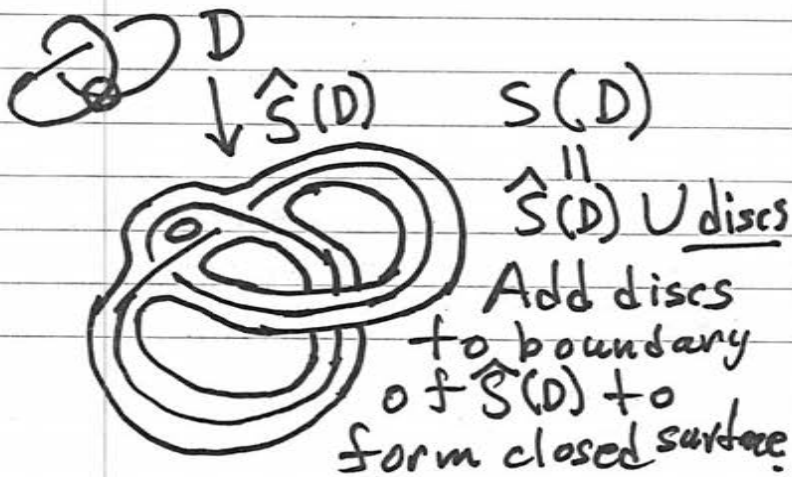 D
Ŝ(D)
S(D)
||
Ŝ(D) ∪ discs
Add discs
to boundary
of Ŝ(D) to
form closed surface.